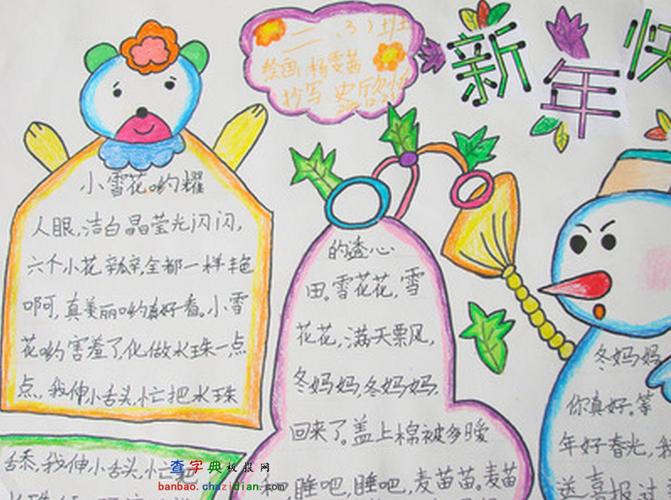 新年快
二、(3)班
绘画:杨雯茜
抄写
小雪花哟耀
人眼,洁白晶莹光闪闪,
六个小花瓣辛全都一样艳
啊呵,真美丽哟真好看。小雪
花哟害羞了,化做水珠一点
点,我伸小舌头,忙把水珠
舌忝,我伸小舌头,忙把
的透心
田。雪花花,雪
花花,满天票风,
冬妈妈,冬妈妈,
回来了。盖上棉被多暖
睡吧,睡吧,麦苗苗。麦苗
冬妈妈
你真好,等
年好春光,我
送喜报过
查字典板报网
banbao.chazidian.com